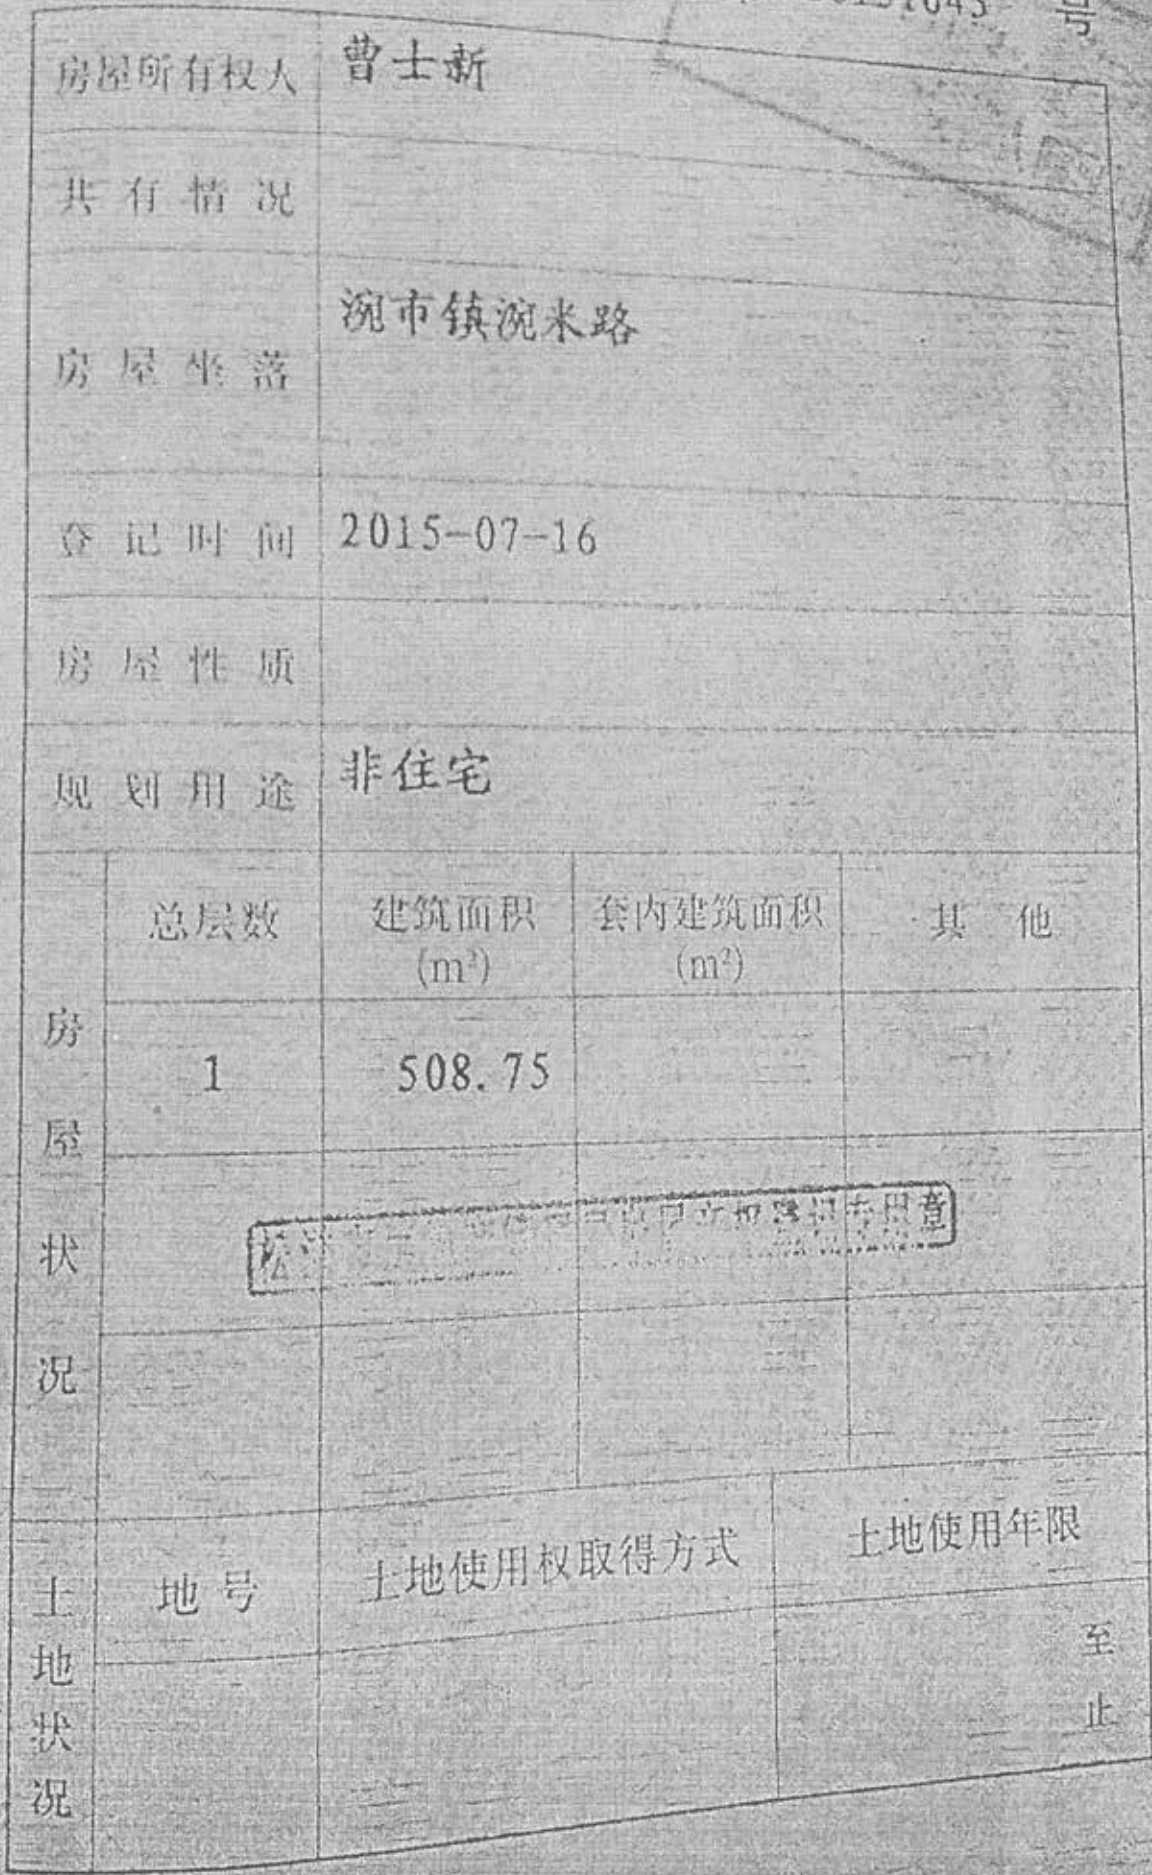 号
房屋所有权人 曹士新
共有情况
房屋坐落 涴市镇涴米路
登记时间 2015-07-16
房屋性质
规划用途 非住宅
房屋状况
总层数 建筑面积 (m²) 套内建筑面积 (m²) 其他
1 508.75
专用章
土地状况
地号 土地使用权取得方式 土地使用年限
至
止